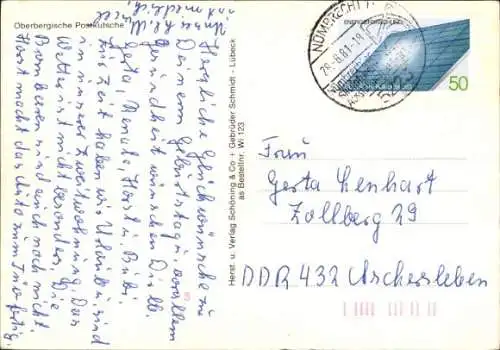 Oberbergische Postkutsche
Herzliche Glückwünsche zu
Deinem Geburtstag u. vor allem
Gesundheit wünschen Dir lb.
Gerta, Renate, Horst u. Bibi.
Zur Zeit haben wir Urlaub u. sind
in unserer Zweitwohnung. Das
Wetter ist nicht besonders, die
Brombeeren sind auch noch nicht
Horst macht das Auto zum TÜV fertig.
Herst. u. Verlag Schöning & Co + Gebrüder Schmidt - Lübeck
as Bestellnr. Wi 123
NÜMBRECHT
28-8.81-18
5223
50
Frau
Gerta Lenhart
Zollberg 29
DDR 432 Aschersleben